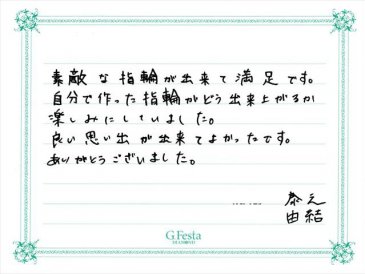 素敵な指輪が出来て満足です。
自分で作った指輪がどう出来上がるか
楽しみにしていました。
良い思い出が出来てよかったです。
ありがとうございました。
恭之
由結
G.Festa